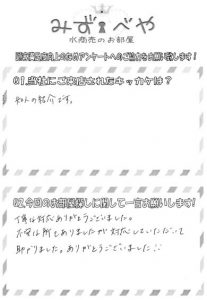 みずべや
水商売のお部屋
Q1.当社にご来店されたキッカケは？
知人の紹介です。
Q2.今回のお部屋探しに関して一言お願いします！
丁寧な対応ありがとうございました。
不安な所もありましたが対応していただいて
助かりました。ありがとうございました